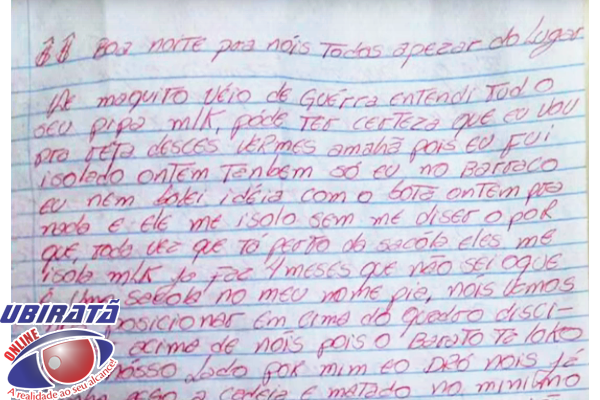 Boa noite pra nóis todos apezar do lugar
Ae maquito véio de guerra entendi todo
seu pipa mlk, póde ter certeza que eu vou
pra reta desces vermes amahã pois eu fui
isolado ontem tenbem só eu no barraco
eu nem botei idéia com o bota ontem pra
nada e ele me isolo sem me diser o por
que, toda vez que tá perto da sacóla eles me
isola mlk ja faz 4 meses que não sei oque
é uma sacola no meu nome pie, nóis vemos
posicionar em cima do quadro disci-
acima de nóis pois o barato te loko
nosso lado por mim eo Dpó nois já
a cadeia e matado no minimo
UBIRATÃ
ONLINE
A realidade ao seu alcance!